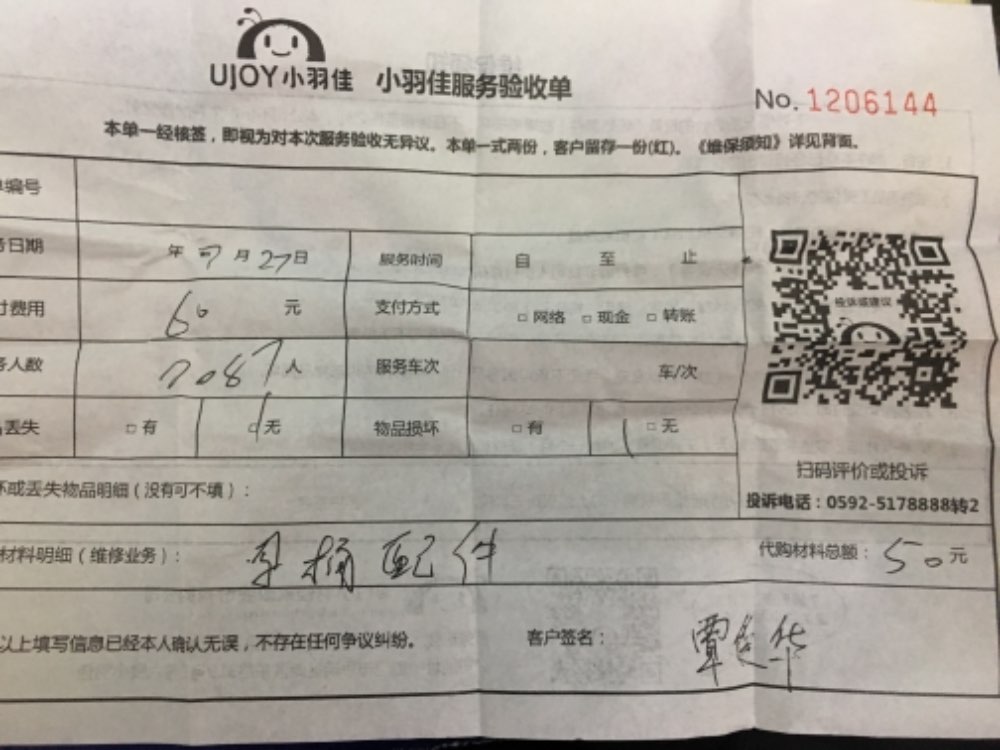 UJOY小羽佳 小羽佳服务验收单
No. 1206144
本单一经核签，即视为对本次服务验收无异议。本单一式两份，客户留存一份(红)。《维保须知》详见背面。
单编号
日期 年 7 月 27 日 服务时间 自 至 止
付费用 60 元 支付方式 □网络 □现金 □转账
务人数 2087 人 服务车次 车/次
丢失 □有 □无 物品损坏 □有 □无
投诉或建议
扫码评价或投诉
投诉电话：0592-5178888转2
坏或丢失物品明细（没有可不填）：
材料明细（维修业务）： 桶配件 代购材料总额： 50 元
以上填写信息已经本人确认无误，不存在任何争议纠纷。 客户签名： 覃 华